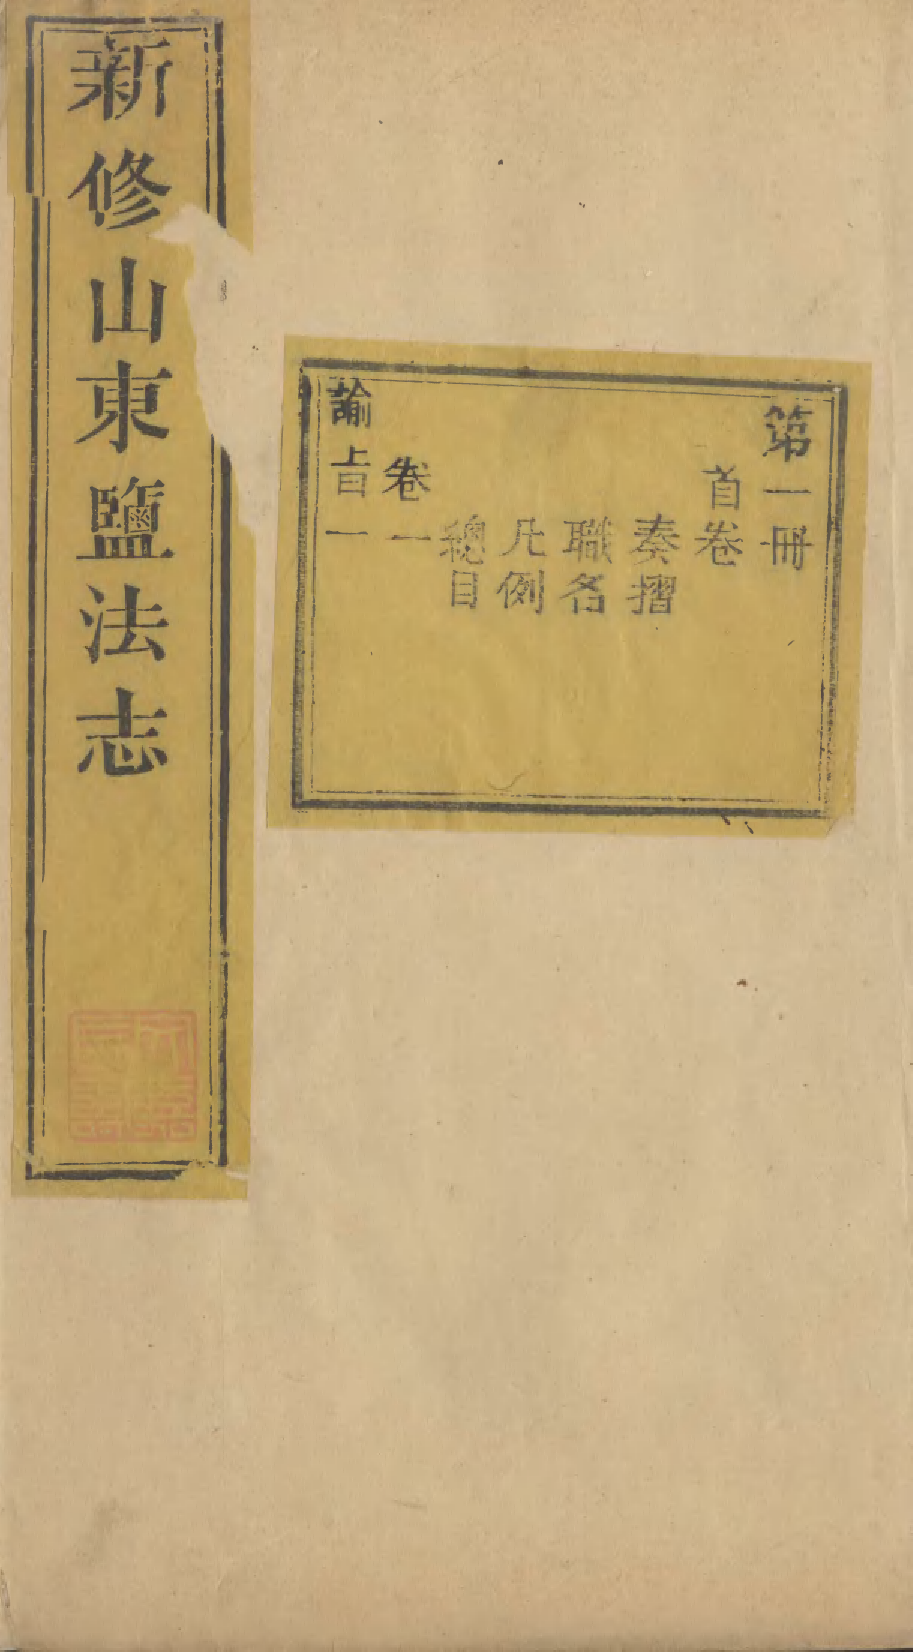 新修山東鹽法志
第一冊
首卷
奏摺
職名
凡例
總目
卷一
諭旨一